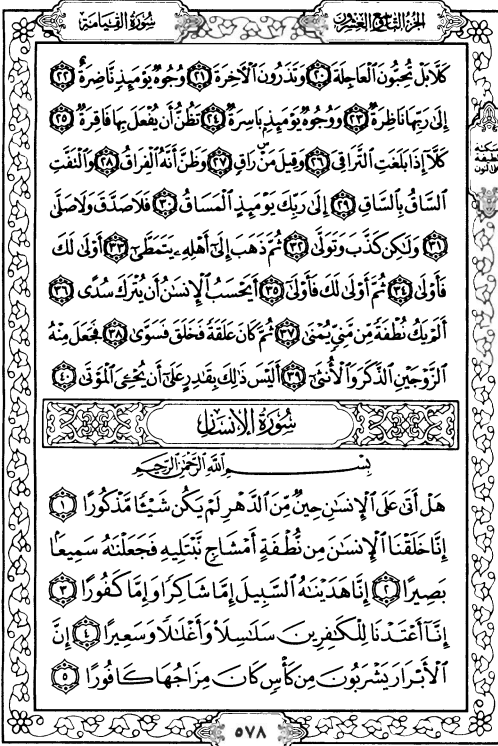 الجزء التاسع والعشرون
سورة القيامة
كَلَّا بَلْ تُحِبُّونَ ٱلْعَاجِلَةَ ٢٠ وَتَذَرُونَ ٱلْءَاخِرَةَ ٢١ وُجُوهٌ يَوْمَئِذٍ نَّاضِرَةٌ ٢٢
إِلَىٰ رَبِّهَا نَاظِرَةٌ ٢٣ وَوُجُوهٌ يَوْمَئِذٍۭ بَاسِرَةٌ ٢٤ تَظُنُّ أَن يُفْعَلَ بِهَا فَاقِرَةٌ ٢٥
كَلَّآ إِذَا بَلَغَتِ ٱلتَّرَاقِىَ ٢٦ وَقِيلَ مَنْ رَاقٍ ٢٧ وَظَنَّ أَنَّهُ ٱلْفِرَاقُ ٢٨ وَٱلْتَفَّتِ
ٱلسَّاقُ بِٱلسَّاقِ ٢٩ إِلَىٰ رَبِّكَ يَوْمَئِذٍ ٱلْمَسَاقُ ٣٠ فَلَا صَدَّقَ وَلَا صَلَّىٰ
٣١ وَلَٰكِن كَذَّبَ وَتَوَلَّىٰ ٣٢ ثُمَّ ذَهَبَ إِلَىٰٓ أَهْلِهِۦ يَتَمَطَّىٰٓ ٣٣ أَوْلَىٰ لَكَ
فَأَوْلَىٰ ٣٤ ثُمَّ أَوْلَىٰ لَكَ فَأَوْلَىٰٓ ٣٥ أَيَحْسَبُ ٱلْإِنسَٰنُ أَن يُتْرَكَ سُدًى ٣٦
أَلَمْ يَكُ نُطْفَةً مِّن مَّنِىٍّ يُمْنَىٰ ٣٧ ثُمَّ كَانَ عَلَقَةً فَخَلَقَ فَسَوَّىٰ ٣٨ فَجَعَلَ مِنْهُ
ٱلزَّوْجَيْنِ ٱلذَّكَرَ وَٱلْأُنثَىٰٓ ٣٩ أَلَيْسَ ذَٰلِكَ بِقَٰدِرٍ عَلَىٰٓ أَن يُحْـِۧىَ ٱلْمَوْتَىٰ ٤٠
سُورَةُ الإنسَان
بِسْمِ ٱللَّهِ ٱلرَّحْمَٰنِ ٱلرَّحِيمِ
هَلْ أَتَىٰ عَلَى ٱلْإِنسَٰنِ حِينٌ مِّنَ ٱلدَّهْرِ لَمْ يَكُن شَيْـًٔا مَّذْكُورًا ١
إِنَّا خَلَقْنَا ٱلْإِنسَٰنَ مِن نُّطْفَةٍ أَمْشَاجٍ نَّبْتَلِيهِ فَجَعَلْنَٰهُ سَمِيعًۢا
بَصِيرًا ٢ إِنَّا هَدَيْنَٰهُ ٱلسَّبِيلَ إِمَّا شَاكِرًا وَإِمَّا كَفُورًا ٣
إِنَّآ أَعْتَدْنَا لِلْكَٰفِرِينَ سَلَٰسِلَا۟ وَأَغْلَٰلًا وَسَعِيرًا ٤ إِنَّ
ٱلْأَبْرَارَ يَشْرَبُونَ مِن كَأْسٍ كَانَ مِزَاجُهَا كَافُورًا ٥
٥٧٨